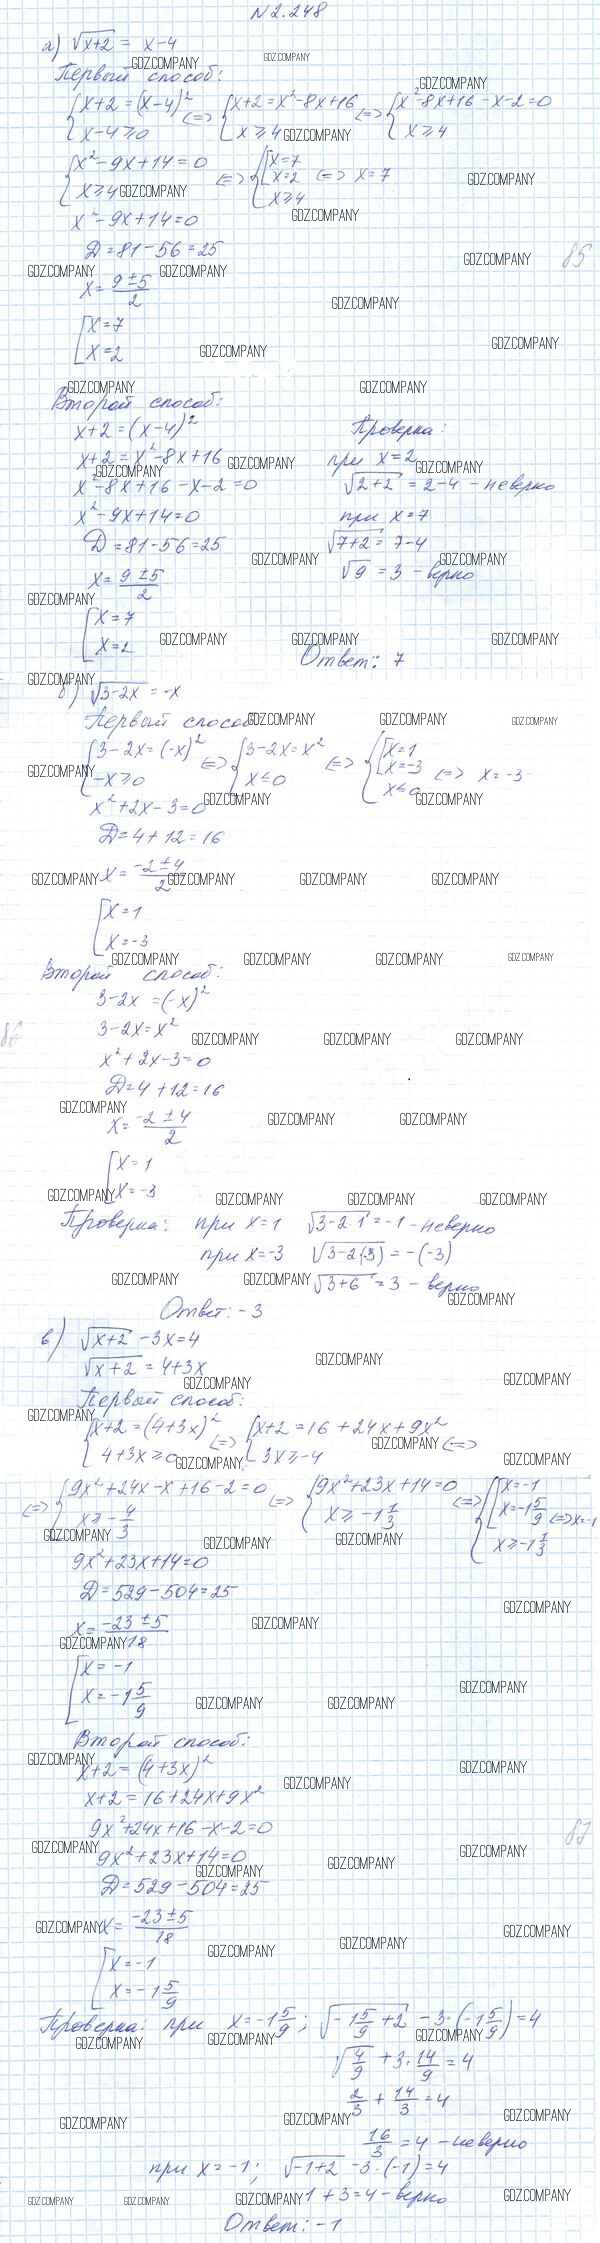 № 2.248
а) √(x+2) = x-4
Первый способ:
{x+2=(x-4)² x-4≥0 <=> {x+2=x²-8x+16 x≥4 <=> {x²-8x+16-x-2=0 x≥4
{x²-9x+14=0 x≥4 <=> {[x=7 x=2 x≥4 <=> x=7
x²-9x+14=0
D=81-56=25
x=(9±5)/2
[x=7
x=2
Второй способ:
x+2=(x-4)²
x+2=x²-8x+16
x²-8x+16-x-2=0
x²-9x+14=0
D=81-56=25
x=(9±5)/2
[x=7
x=2
Проверка:
при x=2
√(2+2) = 2-4 - неверно
при x=7
√(7+2) = 7-4
√9 = 3 - верно
Ответ: 7
б) √(3-2x) = -x
Первый способ:
{3-2x=(-x)² -x≥0 <=> {3-2x=x² x≤0 <=> {[x=1 x=-3 x≤0 <=> x=-3
x²+2x-3=0
D=4+12=16
x=(-2±4)/2
[x=1
x=-3
Второй способ:
3-2x=(-x)²
3-2x=x²
x²+2x-3=0
D=4+12=16
x=(-2±4)/2
[x=1
x=-3
Проверка: при x=1 √(3-2·1) = -1 - неверно
при x=-3 √(3-2(-3)) = -(-3)
√(3+6) = 3 - верно
Ответ: -3
в) √(x+2) - 3x=4
√(x+2) = 4+3x
Первый способ:
{x+2=(4+3x)² 4+3x≥0 <=> {x+2=16+24x+9x² 3x≥-4 <=>
<=> {9x²+24x-x+16-2=0 x≥-4/3 <=> {9x²+23x+14=0 x≥-1 1/3 <=> {[x=-1 x=-1 5/9 x≥-1 1/3 <=> x=-1
9x²+23x+14=0
D=529-504=25
x=(-23±5)/18
[x=-1
x=-1 5/9
Второй способ:
x+2=(4+3x)²
x+2=16+24x+9x²
9x²+24x+16-x-2=0
9x²+23x+14=0
D=529-504=25
x=(-23±5)/18
[x=-1
x=-1 5/9
Проверка: при x=-1 5/9; √(-1 5/9+2) - 3·(-1 5/9)=4
√(4/9) + 3·14/9=4
2/3 + 14/3=4
16/3=4 - неверно
при x=-1; √(-1+2) - 3·(-1)=4
1+3=4 - верно
Ответ: -1
GDZ.COMPANY
85
86
87